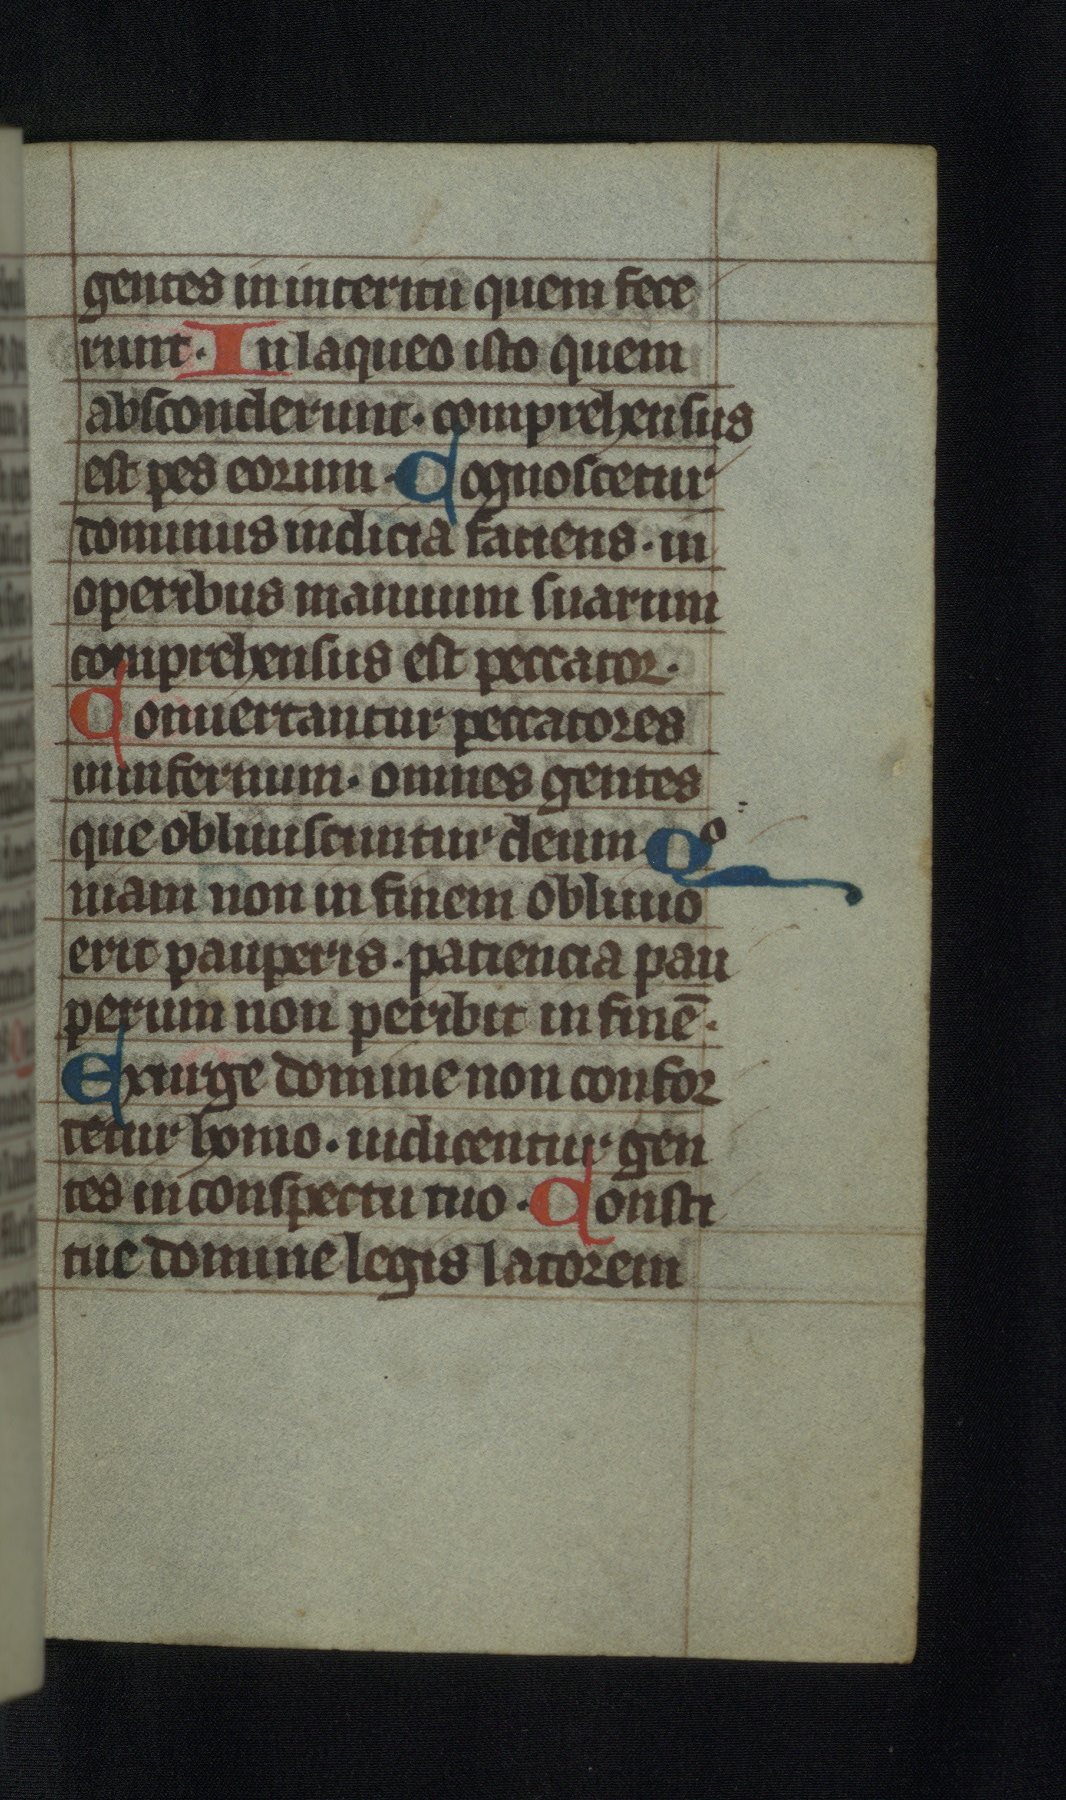 gentes in interitu quem fece
runt. In laqueo isto quem
absconderunt. comprehensus
est pes eorum. Cognoscetur
dominus iudicia faciens. in
operibus manuum suarum
comprehensus est peccator.
Conuertantur peccatores
in infernum. omnes gentes
que obliuiscuntur deum Qo
niam non in finem obliuio
erit pauperis. patiencia pau
perum non peribit in finē.
Exurge domine non confor
tetur homo. iudicentur gen
tes in conspectu tuo. Consti
tue domine legis latorem